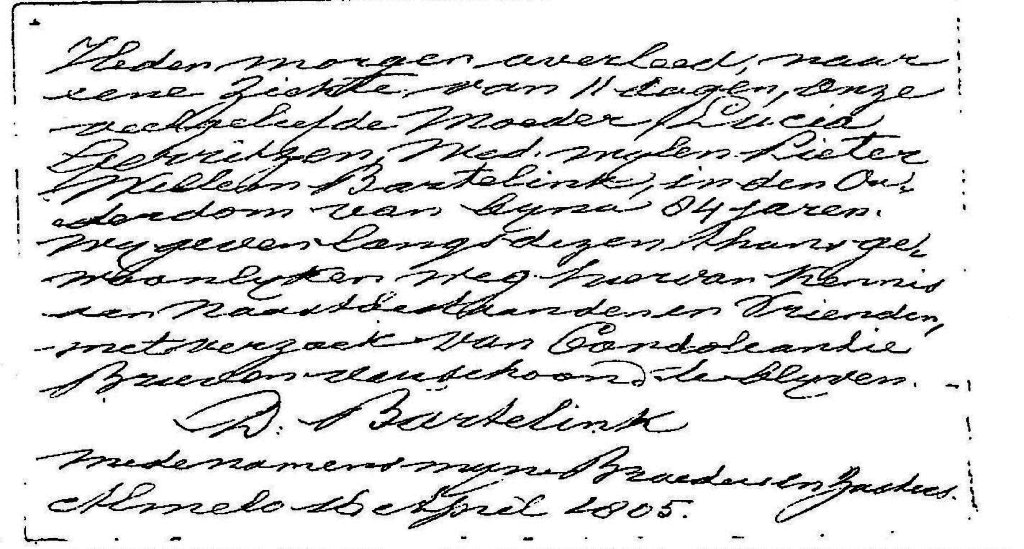 Heden morgen overleed, naar
eene Ziekte van 11 dagen, onze
veelgeliefde Moeder, Lucia
Gerritzen, Wed. wylen Pieter
Willem Bartelink, in den Ou-
derdom van byna 84 jaren.
Wy geven langs dezen thans ge-
woonlyken weg hiervan kennis
aan Naastbestaanden en Vrienden,
met verzoek van Condoleantie
Brieven verschoond te blyven.
D. Bartelink
mede namens myne Broeders en Zusters.
Almelo 16 April 1805.